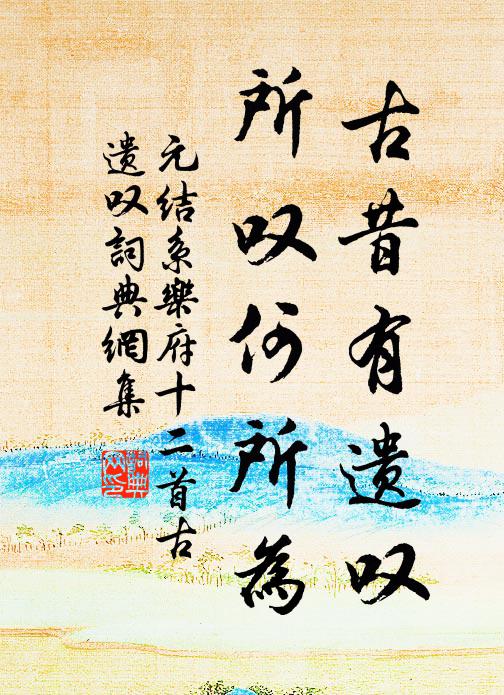 古昔有遗叹
所叹何所為
元结系樂府十二首古
遗叹詞典網集